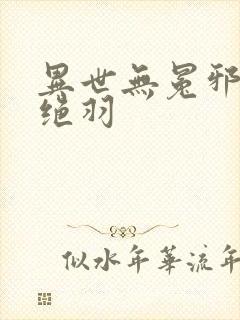 異世無冕邪
绝羽
似水年華流年